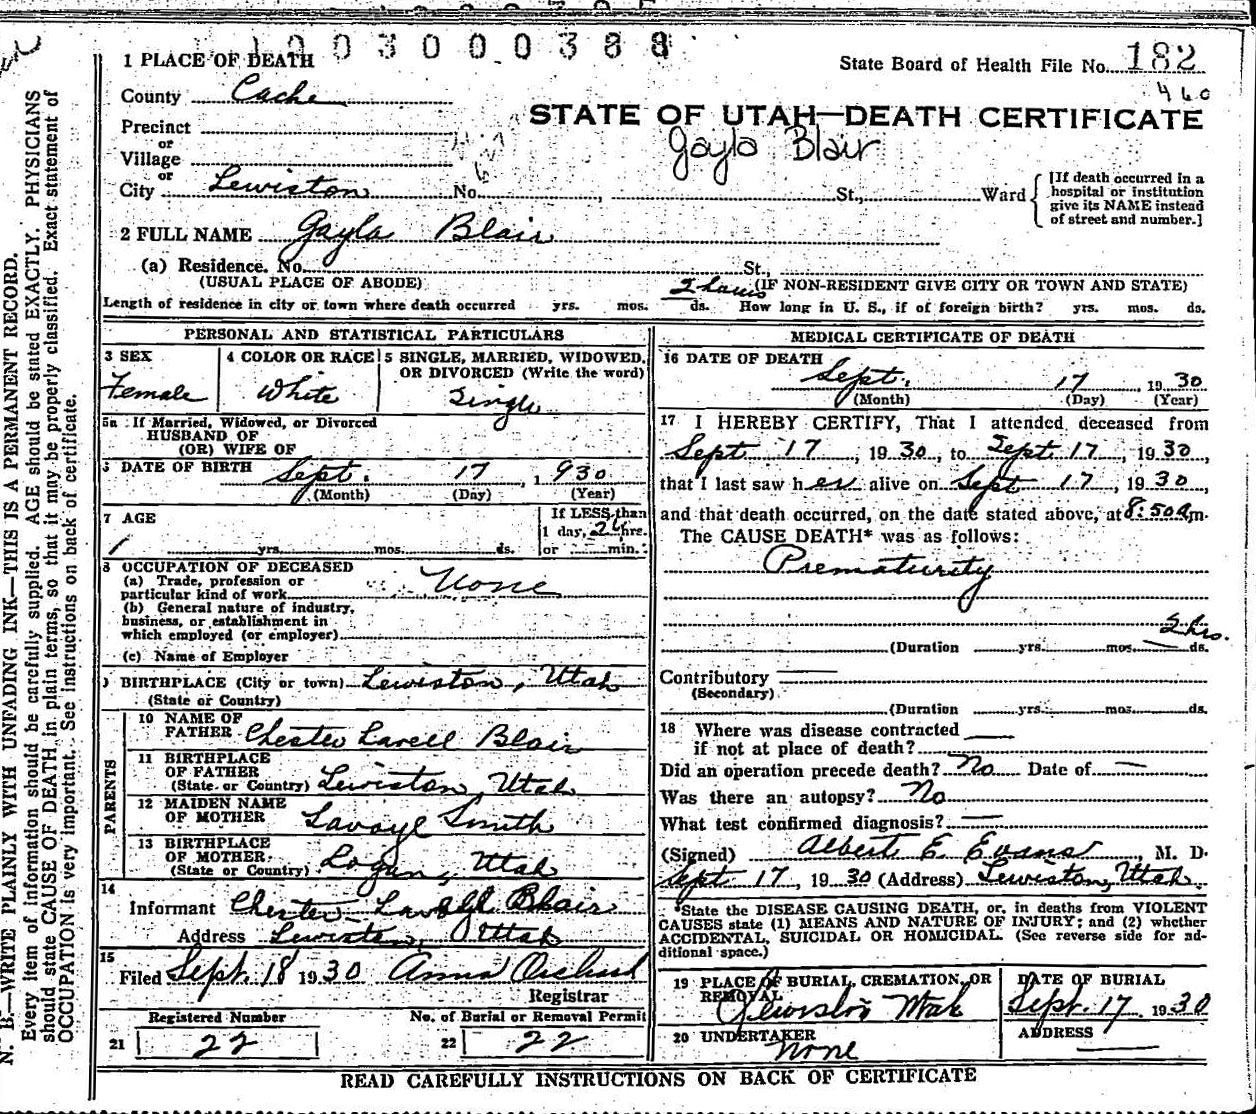 1003000388
1 PLACE OF DEATH
State Board of Health File No. 182
460
County Cache
STATE OF UTAH—DEATH CERTIFICATE
Precinct
or
Gayla Blair
Village
or
City Lewiston No. St., Ward
[If death occurred in a
hospital or institution
give its NAME instead
of street and number.]
2 FULL NAME Gayla Blair
(a) Residence. No. St.,
(USUAL PLACE OF ABODE) (IF NON-RESIDENT GIVE CITY OR TOWN AND STATE)
2 hours
Length of residence in city or town where death occurred yrs. mos. ds. How long in U. S., if of foreign birth? yrs. mos. ds.
PERSONAL AND STATISTICAL PARTICULARS
3 SEX 4 COLOR OR RACE 5 SINGLE, MARRIED, WIDOWED,
OR DIVORCED (Write the word)
Female White Single
5a If Married, Widowed, or Divorced
HUSBAND OF
(OR) WIFE OF
DATE OF BIRTH Sept. 17, 1930
(Month) (Day) (Year)
7 AGE If LESS than
1 day, hrs.
yrs. mos. ds. or min.
8 OCCUPATION OF DECEASED
(a) Trade, profession or
particular kind of work None
(b) General nature of industry,
business, or establishment in
which employed (or employer)
(c) Name of Employer
BIRTHPLACE (City or town) Lewiston, Utah
(State or Country)
PARENTS
10 NAME OF
FATHER Chester Lavell Blair
11 BIRTHPLACE
OF FATHER
(State or Country) Lewiston, Utah
12 MAIDEN NAME
OF MOTHER Lavoyl Smith
13 BIRTHPLACE
OF MOTHER
(State or Country) Logan, Utah
14
Informant Chester Lavell Blair
Address Lewiston, Utah
15
Filed Sept. 18 1930 Anna Orchard
Registrar
Registered Number No. of Burial or Removal Permit
21 22 22 22
MEDICAL CERTIFICATE OF DEATH
16 DATE OF DEATH
Sept. 17, 1930
(Month) (Day) (Year)
17 I HEREBY CERTIFY, That I attended deceased from
Sept 17, 1930, to Sept. 17, 1930,
that I last saw her alive on Sept 17, 1930,
and that death occurred, on the date stated above, at 8:50 a.m.
The CAUSE DEATH* was as follows:
Prematurity
2 hrs.
(Duration yrs. mos. ds.
Contributory
(Secondary)
(Duration yrs. mos. ds.
18 Where was disease contracted
if not at place of death?
Did an operation precede death? No Date of —
Was there an autopsy? No
What test confirmed diagnosis? —
(Signed) Albert E Evans, M. D.
Sept 17, 1930 (Address) Lewiston, Utah.
*State the DISEASE CAUSING DEATH, or, in deaths from VIOLENT
CAUSES state (1) MEANS AND NATURE OF INJURY; and (2) whether
ACCIDENTAL, SUICIDAL OR HOMICIDAL. (See reverse side for ad-
ditional space.)
19 PLACE OF BURIAL, CREMATION, OR
REMOVAL
Lewiston Utah
DATE OF BURIAL
Sept. 17 1930
20 UNDERTAKER
None
ADDRESS
READ CAREFULLY INSTRUCTIONS ON BACK OF CERTIFICATE
N. B.—WRITE PLAINLY WITH UNFADING INK—THIS IS A PERMANENT RECORD.
Every item of information should be carefully supplied. AGE should be stated EXACTLY. PHYSICIANS
should state CAUSE OF DEATH in plain terms, so that it may be properly classified. Exact statement of
OCCUPATION is very important. See instructions on back of certificate.